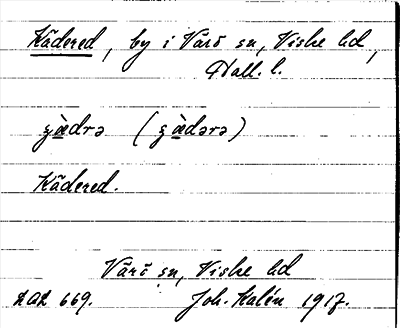 Kädered, by i Värö sn, Viske hd,
Hall. l.
gæ̀drə (gæ̀dərə)
Kädered.
Värö sn, Viske hd
LAL 669. Joh. Kalén 1917.